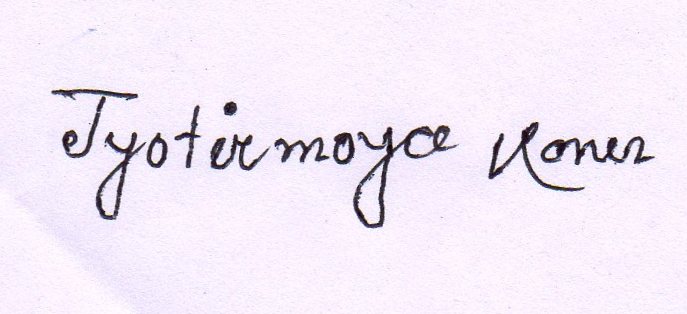 Jyotirmoyee Koner